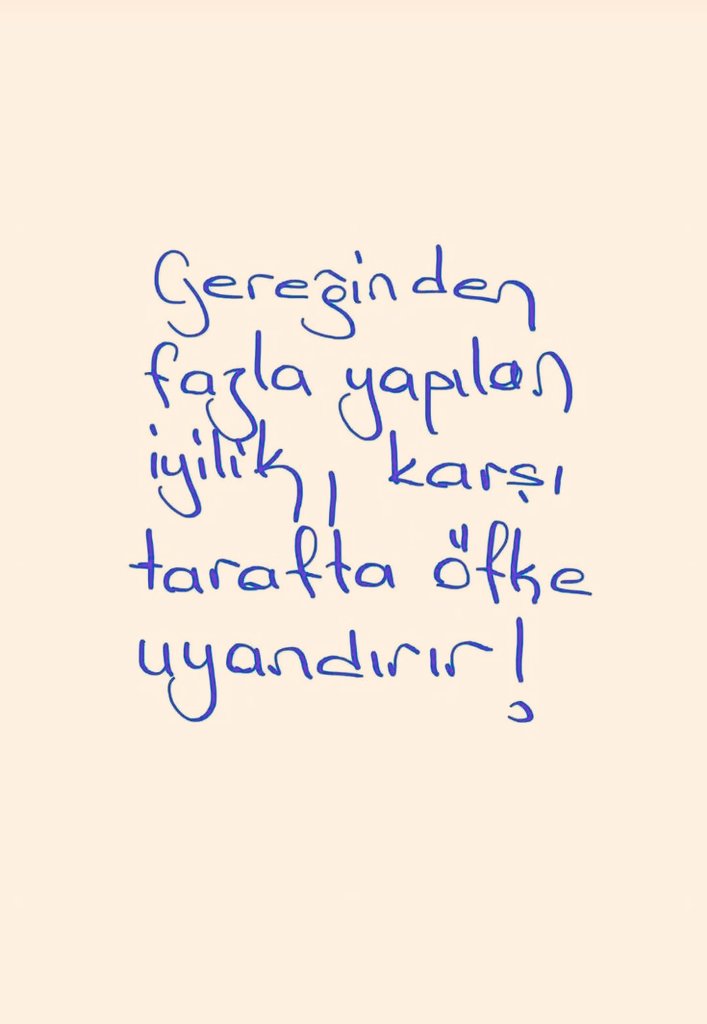 Gereğinden
fazla yapılan
iyilik, karşı
tarafta öfke
uyandırır!